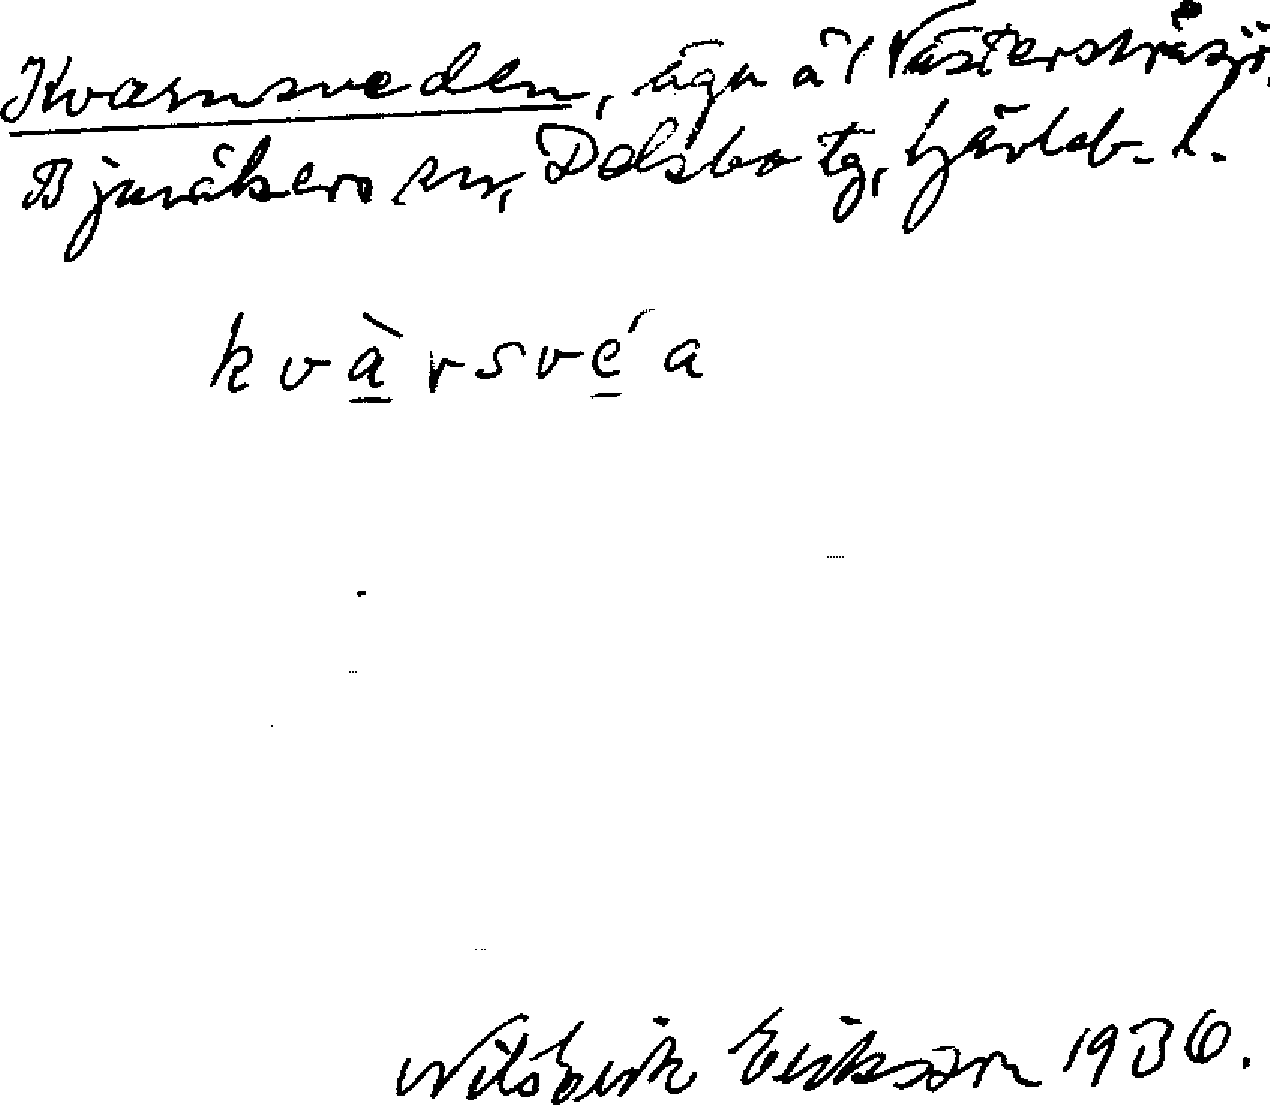 Kvarnsveden, ägn å Västerstråsjö,
Bjuråkers sn, Delsbo tg, Gävleb. l.
kvàrsvéa
Nils Erik Erikson 1936.